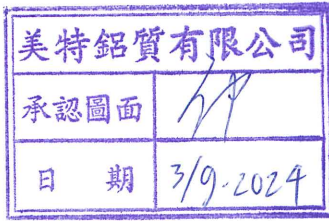 美特鋁質有限公司
承認圖面
日 期 3/9.2024